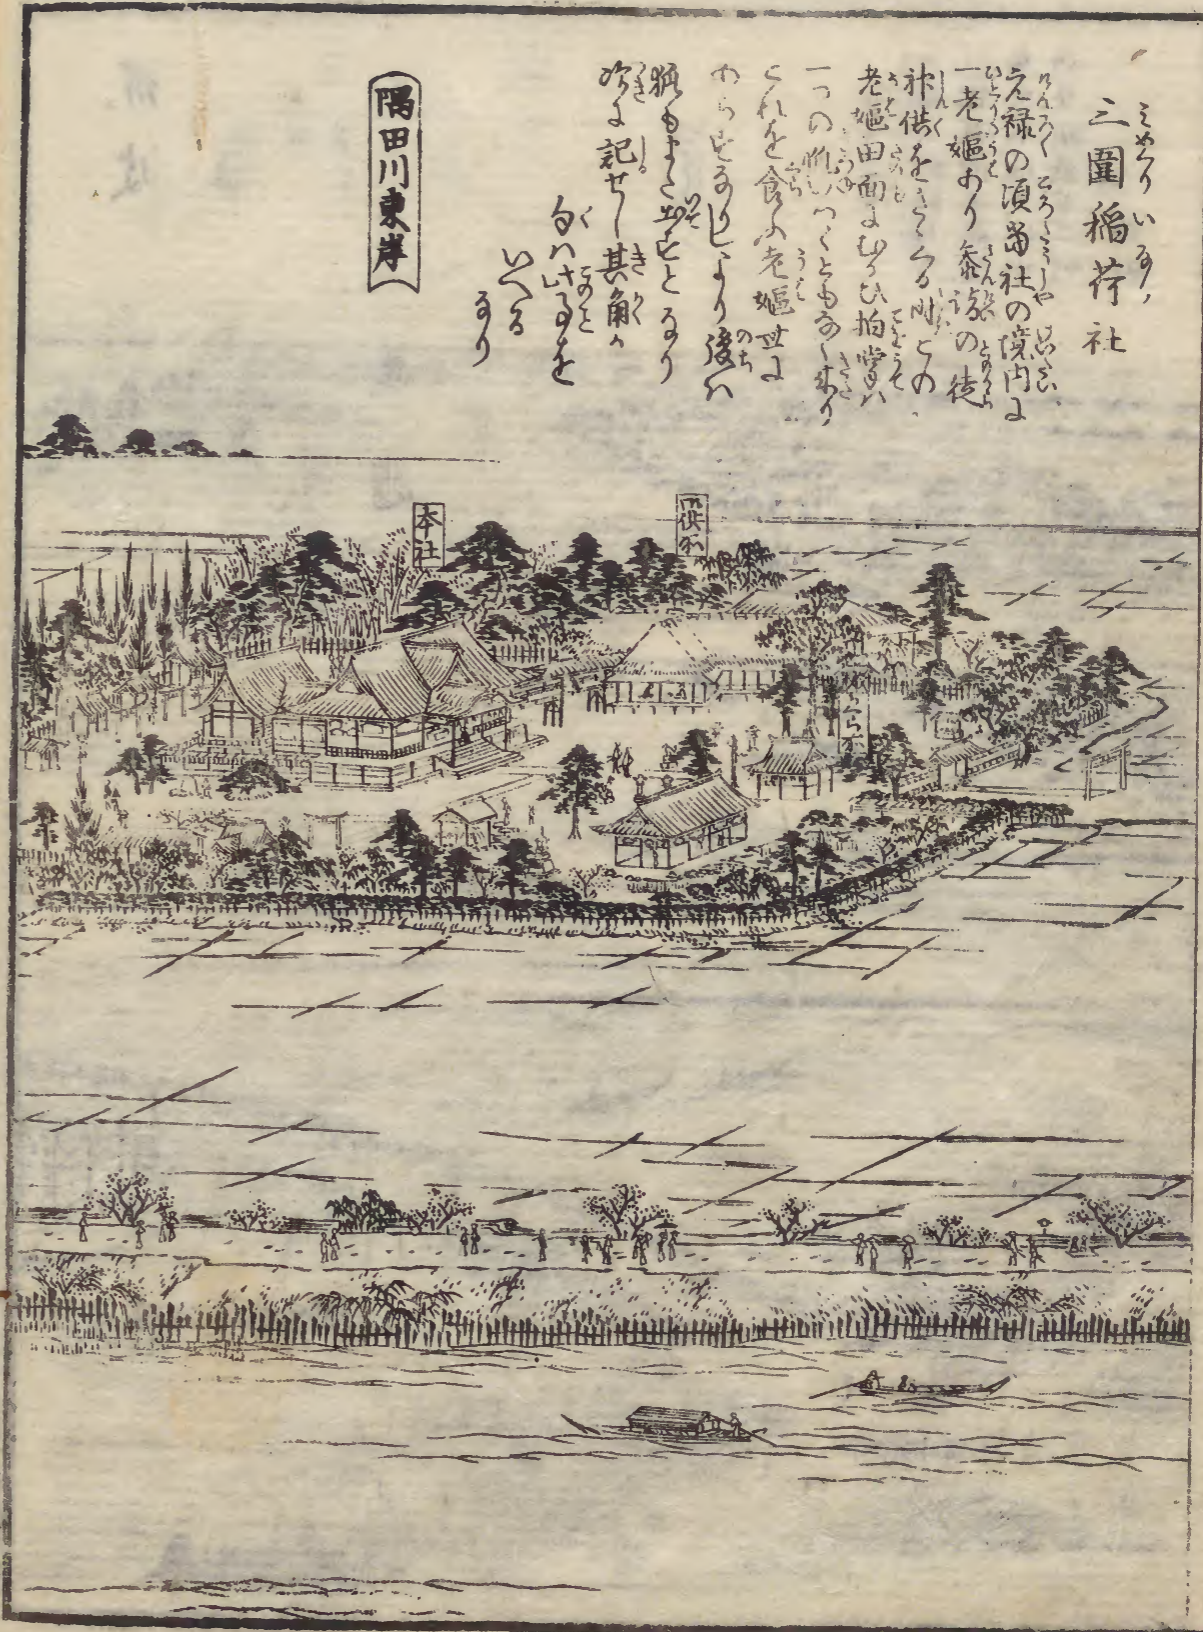 三圍稲荷社
元禄の頃當社の境内に
一老嫗あり参詣の徒
神供をさゝくる時この
老嫗田面にむかひ拍掌ハ
一つの狐いつくともなく来り
これを食ふ老嫗世に
あらすなりしより後ハ
狐もまた出すとなり
次に記せし其角か
句ハ此事を
いへる
なり
隅田川東岸
御供所
本社